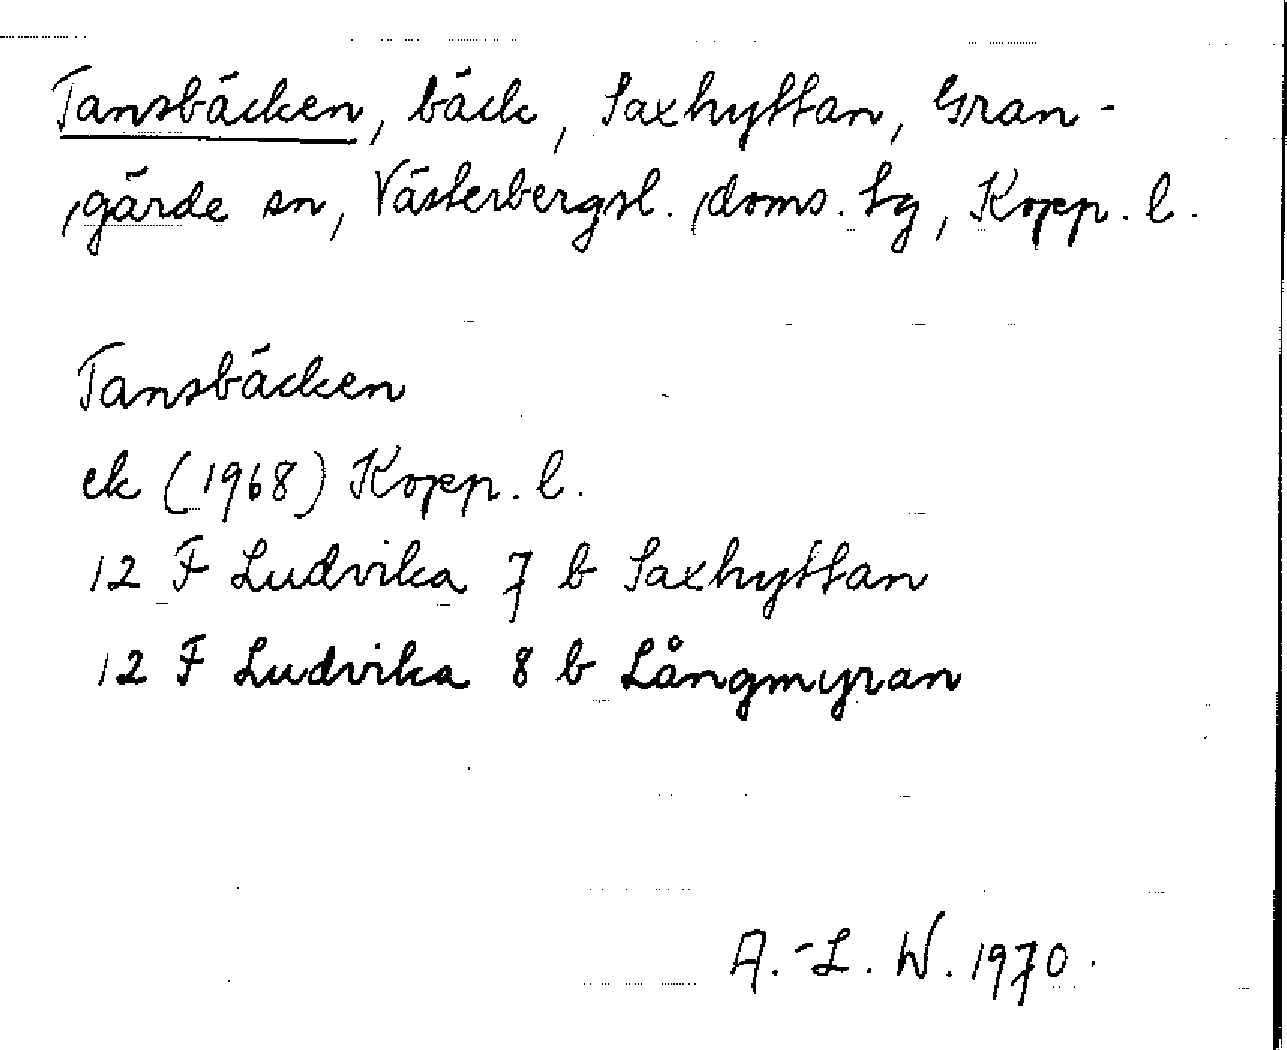 Tansbäcken, bäck, Saxhyttan, Gran-
gärde sn, Västerbergsl. doms. tg, Kopp. l.
Tansbäcken
ek (1968) Kopp. l.
12 F Ludvika 7 b Saxhyttan
12 F Ludvika 8 b Långmyran
A.-L. W. 1970.